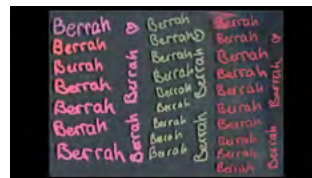 Berrah
Berrah
Berrah
Berrah
Berrah
Berrah
Berrah
Berrah
Berrah
Berrah
Berrah
Berrah
Berrah
Berrah
Berrah
Berrah
Berrah
Berrah
Berrah
Berrah
Berrah
Berrah
Berrah
Berrah
Berrah
Berrah
Berrah
Berrah
Berrah
Berrah
Berrah
Berrah